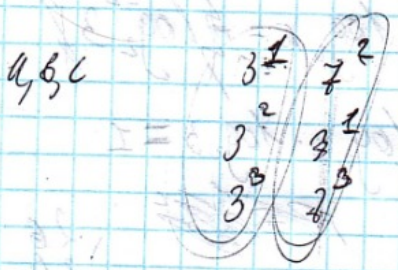 a, b, c 3¹ 7²
3² 7¹
3³ 7³